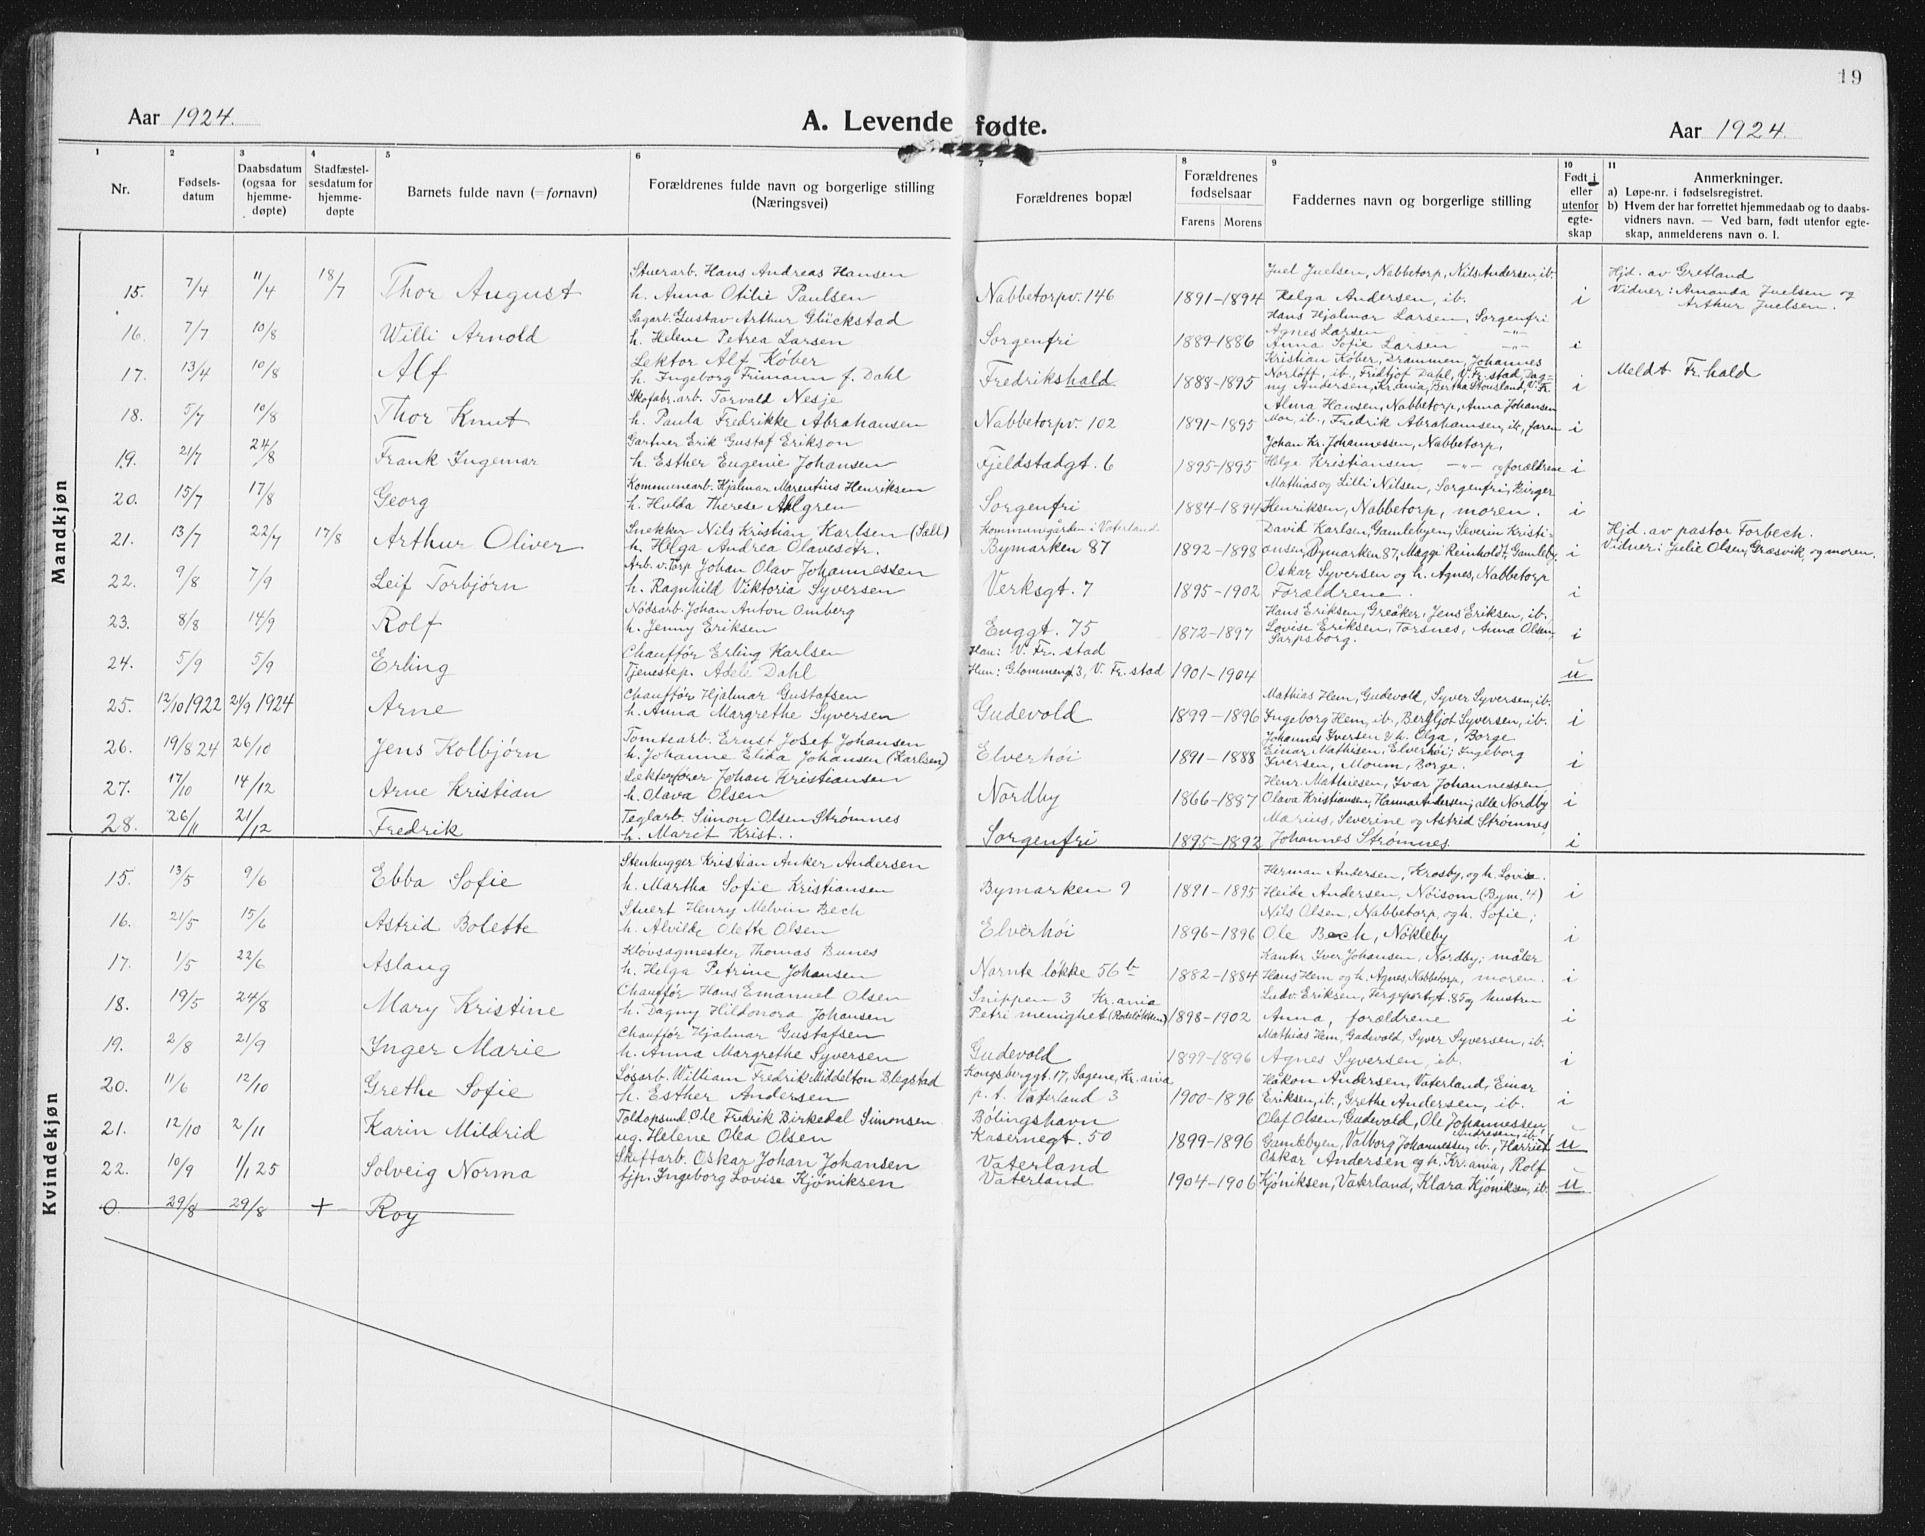 19
Aar 1924.
A. Levende fødte.
Aar 1924.
1 2 3 4 5 6 7 8 9 10 11
Nr.
Fødsels-
datum
Daabsdatum
(ogsaa for
hjemme-
døpte)
Stadfæstel-
sesdatum for
hjemme-
døpte
Barnets fulde navn (= fornavn)
Forældrenes fulde navn og borgerlige stilling
(Næringsvei)
Forældrenes bopæl
Forældrenes
fødselsaar
Farens Morens
Faddernes navn og borgerlige stilling
Født i
eller
utenfor
egte-
skap
Anmerkninger.
a) Løpe-nr. i fødselsregistret.
b) Hvem der har forrettet hjemmedaab og to daabs-
vidners navn. — Ved barn, født utenfor egte-
skap, anmelderens navn o. l.
Mandkjøn
Stuerarb. Hans Andreas Hansen Juel Juelsen, Nabbetorp, Nils Andersen, ib. Hjd. av Gretland
15. 7/4 11/4 18/7 Thor August h. Anna Otilie Paulsen Nabbetorpv. 146 1891-1894 Helga Andersen, ib. i Vidner: Amanda Juelsen og
Arthur Juelsen.
Sagarb. Gustav Arthur Glückstad Hans Hjalmar Larsen, Sorgenfri
16. 7/7 10/8 Willi Arnold h. Helene Petrea Larsen Sorgenfri 1889-1886 Agnes Larsen -"-
Anna Sofie Larsen -"- i
17. 13/4 10/8 Alf Lektor Alf Køber Kristian Køber, Drammen, Johannes
h. Ingeborg Frimann f. Dahl Fredrikshald 1888-1895 Norløff, ib., Fridtjof Dahl, V. Fr.stad, Dag- i Meldt Fr.hald
ny Andersen, Kr.ania, Bertha Stousland, V. Fr.
Skofabr.arb. Torvald Nesje Alma Hansen, Nabbetorp, Anna Johansen
18. 5/7 10/8 Thor Knut h. Paula Fredrikke Abrahamsen Nabbetorpv. 102 1891-1895 Mor, ib., Fredrik Abrahamsen, ib., faren i
Gartner Erik Gustaf Erikson Johan Kr. Johannessen, Nabbetorp,
19. 21/7 24/8 Frank Ingemar h. Esther Eugenie Johansen Fjeldstadgt. 6 1895-1895 Helge Kristiansen -"- og forældrene i
Kommunearb. Hjalmar Marentius Henriksen Mathias og Lilli Nilsen, Sorgenfri, Birger
20. 15/7 17/8 Georg h. Hulda Therese Ahlgren Sorgenfri 1884-1894 Henriksen, Nabbetorp, moren. i
Snekker Nils Kristian Karlsen (Sæll) Kommunegården i Vaterland David Karlsen, Gamlebyen, Severin Kristi- Hjd. av pastor Torbech.
21. 13/7 22/7 17/8 Arthur Oliver h. Helga Andrea Olavesdtr. Bymarken 87 1892-1898 ansen, Bymarken 87, Maggi Reinholdt, Gamleby. i Vidner: Julie Olsen, Græsvik, og moren.
Arb. v. Torp Johan Olav Johannessen Oskar Syversen og h. Agnes, Nabbetorp
22. 9/8 7/9 Leif Torbjørn h. Ragnhild Viktoria Syversen Verksgt. 7 1895-1902 Forældrene. i
Nødsarb. Johan Anton Omberg Hans Eriksen, Greåker, Jens Eriksen, ib.
23. 8/8 14/9 Rolf h. Jenny Eriksen Enggt. 75 1872-1897 Lovise Eriksen, Torsnes, Anna Olsen, i
Sarpsborg.
24. 5/9 5/9 Erling Chauffør Erling Karlsen Han: V. Fr.stad
Tjenestep. Adele Dahl Hun: Glommengt. 3, V. Fr.stad 1901-1904 u
Chauffør Hjalmar Gustafsen Mathias Hem, Gudevold, Syver Syversen, ib.
25. 12/10 1922 21/9 1924 Arne h. Anna Margrethe Syversen Gudevold 1899-1896 Ingeborg Hem, ib., Bergljot Syversen, ib. i
Tomtearb. Ernst Josef Johansen Johannes Iversen og h. Olga, Borge
26. 19/8 24 26/10 Jens Kolbjørn h. Johanne Elida Johansen (Karlsen) Elverhøi 1891-1888 Einar Mathisen, Elverhøi; Ingeborg
Iversen, Moum, Borge. i
Lekterfører Johan Kristiansen Henr. Mathiesen, Ivar Johannessen
27. 17/10 14/12 Arne Kristian h. Olava Olsen Nordby 1866-1887 Olava Kristiansen, Hanna Andersen, alle Nordby i
Teglarb. Simon Olsen Strømnes Marius, Severine og Astrid Strømnes,
28. 26/11 21/12 Fredrik h. Marit Krist.. Sorgenfri 1895-1892 Johannes Strømnes i
Kvindekjøn
Stenhugger Kristian Anker Andersen Herman Andersen, Krosby, og h. Lovise.
15. 13/5 9/6 Ebba Sofie h. Martha Sofie Kristiansen Bymarken 9 1891-1895 Heide Andersen, Nøisom (Bym. 4) i
Stuert Henry Melvin Bech Nils Olsen, Nabbetorp, og h. Sofie;
16. 21/5 15/6 Astrid Bolette h. Alvilde Olette Olsen Elverhøi 1896-1896 Ole Bech, Nøkleby i
Kløvsagmester Thomas Bunes Kanter Iver Johansen, Nordby; måler
17. 1/5 22/6 Aslaug h. Helga Petrine Johansen Narnte løkke 56b 1882-1884 Hans Hem og h. Agnes, Nabbetorp, moren. i
Chauffør Hans Emanuel Olsen Snippen 3 Kr.ania Ludv. Eriksen, Fergeportgt. 85 og hustru
18. 19/5 24/8 Mary Kristine h. Dagny Hildonora Johansen Petri menighet (Rodeløkken) 1898-1902 Anna, forældrene i
Chauffør Hjalmar Gustafsen Mathias Hem, Gudevold, Syver Syversen, ib.
19. 2/8 21/9 Inger Marie h. Anna Margrethe Syversen Gudevold 1899-1896 Agnes Syversen, ib. i
Løsarb. William Fredrik Middelton Blegstad Kongsberggt. 17, Sagene, Kr.ania Håkon Andersen, Vaterland, Einar
20. 11/6 12/10 Grethe Sofie h. Esther Andersen p. t. Vaterland 3 1900-1896 Eriksen, ib., Grethe Andersen, ib. i
Toldopsmd. Ole Fredrik Birkedal Simonsen Bølingshavn Olaf Olsen, Gudevold, Ole Johannessen,
21. 12/10 2/11 Karin Mildrid ug. Helene Olea Olsen Kasernegt. 50 1899-1896 Gamlebyen, Valborg Johannessen, ib., Harriet Andresen, ib. u
Skiftarb. Oskar Johan Johansen Vaterland Oskar Andersen og h. Kr.ania, Rolf
22. 10/9 1/1 25 Solveig Norma tjp. Ingeborg Lovise Kjøniksen Vaterland 1904-1906 Kjøniksen, Vaterland, Klara Kjøniksen, ib. u
0. 29/8 29/8 + Roy